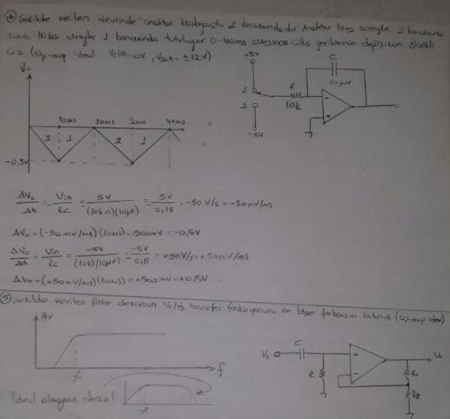 ④ Şekilde verilen devrede anahtar başlangıçta 2 konumundadır. Anahtar 10ms süreyle 1 konumuna
sonra 10ms süreyle 1 konumunda tutuluyor 0-40ms süresince çıkış geriliminin değişimini
(Op-amp ideal ±12V)
Vo
10ms 20ms 30ms 40ms
2 1 2 1
-0.5V
+5V
2
1
-5V
R
10k
C
10µF
ΔVo/Δt = Vin/RC = 5V/(10kΩ)(10µF) = -5V/0,1s = -50V/s = -50mV/ms
ΔVo = (-50mV/ms)(10ms) = -500mV = -0,5V
ΔVo/Δt = Vin/RC = -5V/(10k)(10µF) = -5V/-0,1s = +50V/s = +50mV/ms
ΔVo = (+50mV/ms)(10ms) = +500mV = +0,5V
⑤ Şekilde verilen filtre devresinin Vo/Vs transfer fonksiyonunu ve köşe frekansını bulunuz (Op-amp ideal)
Av
f
İdeal olmayan devre!
Vs
C
R
Vo
R1
R2